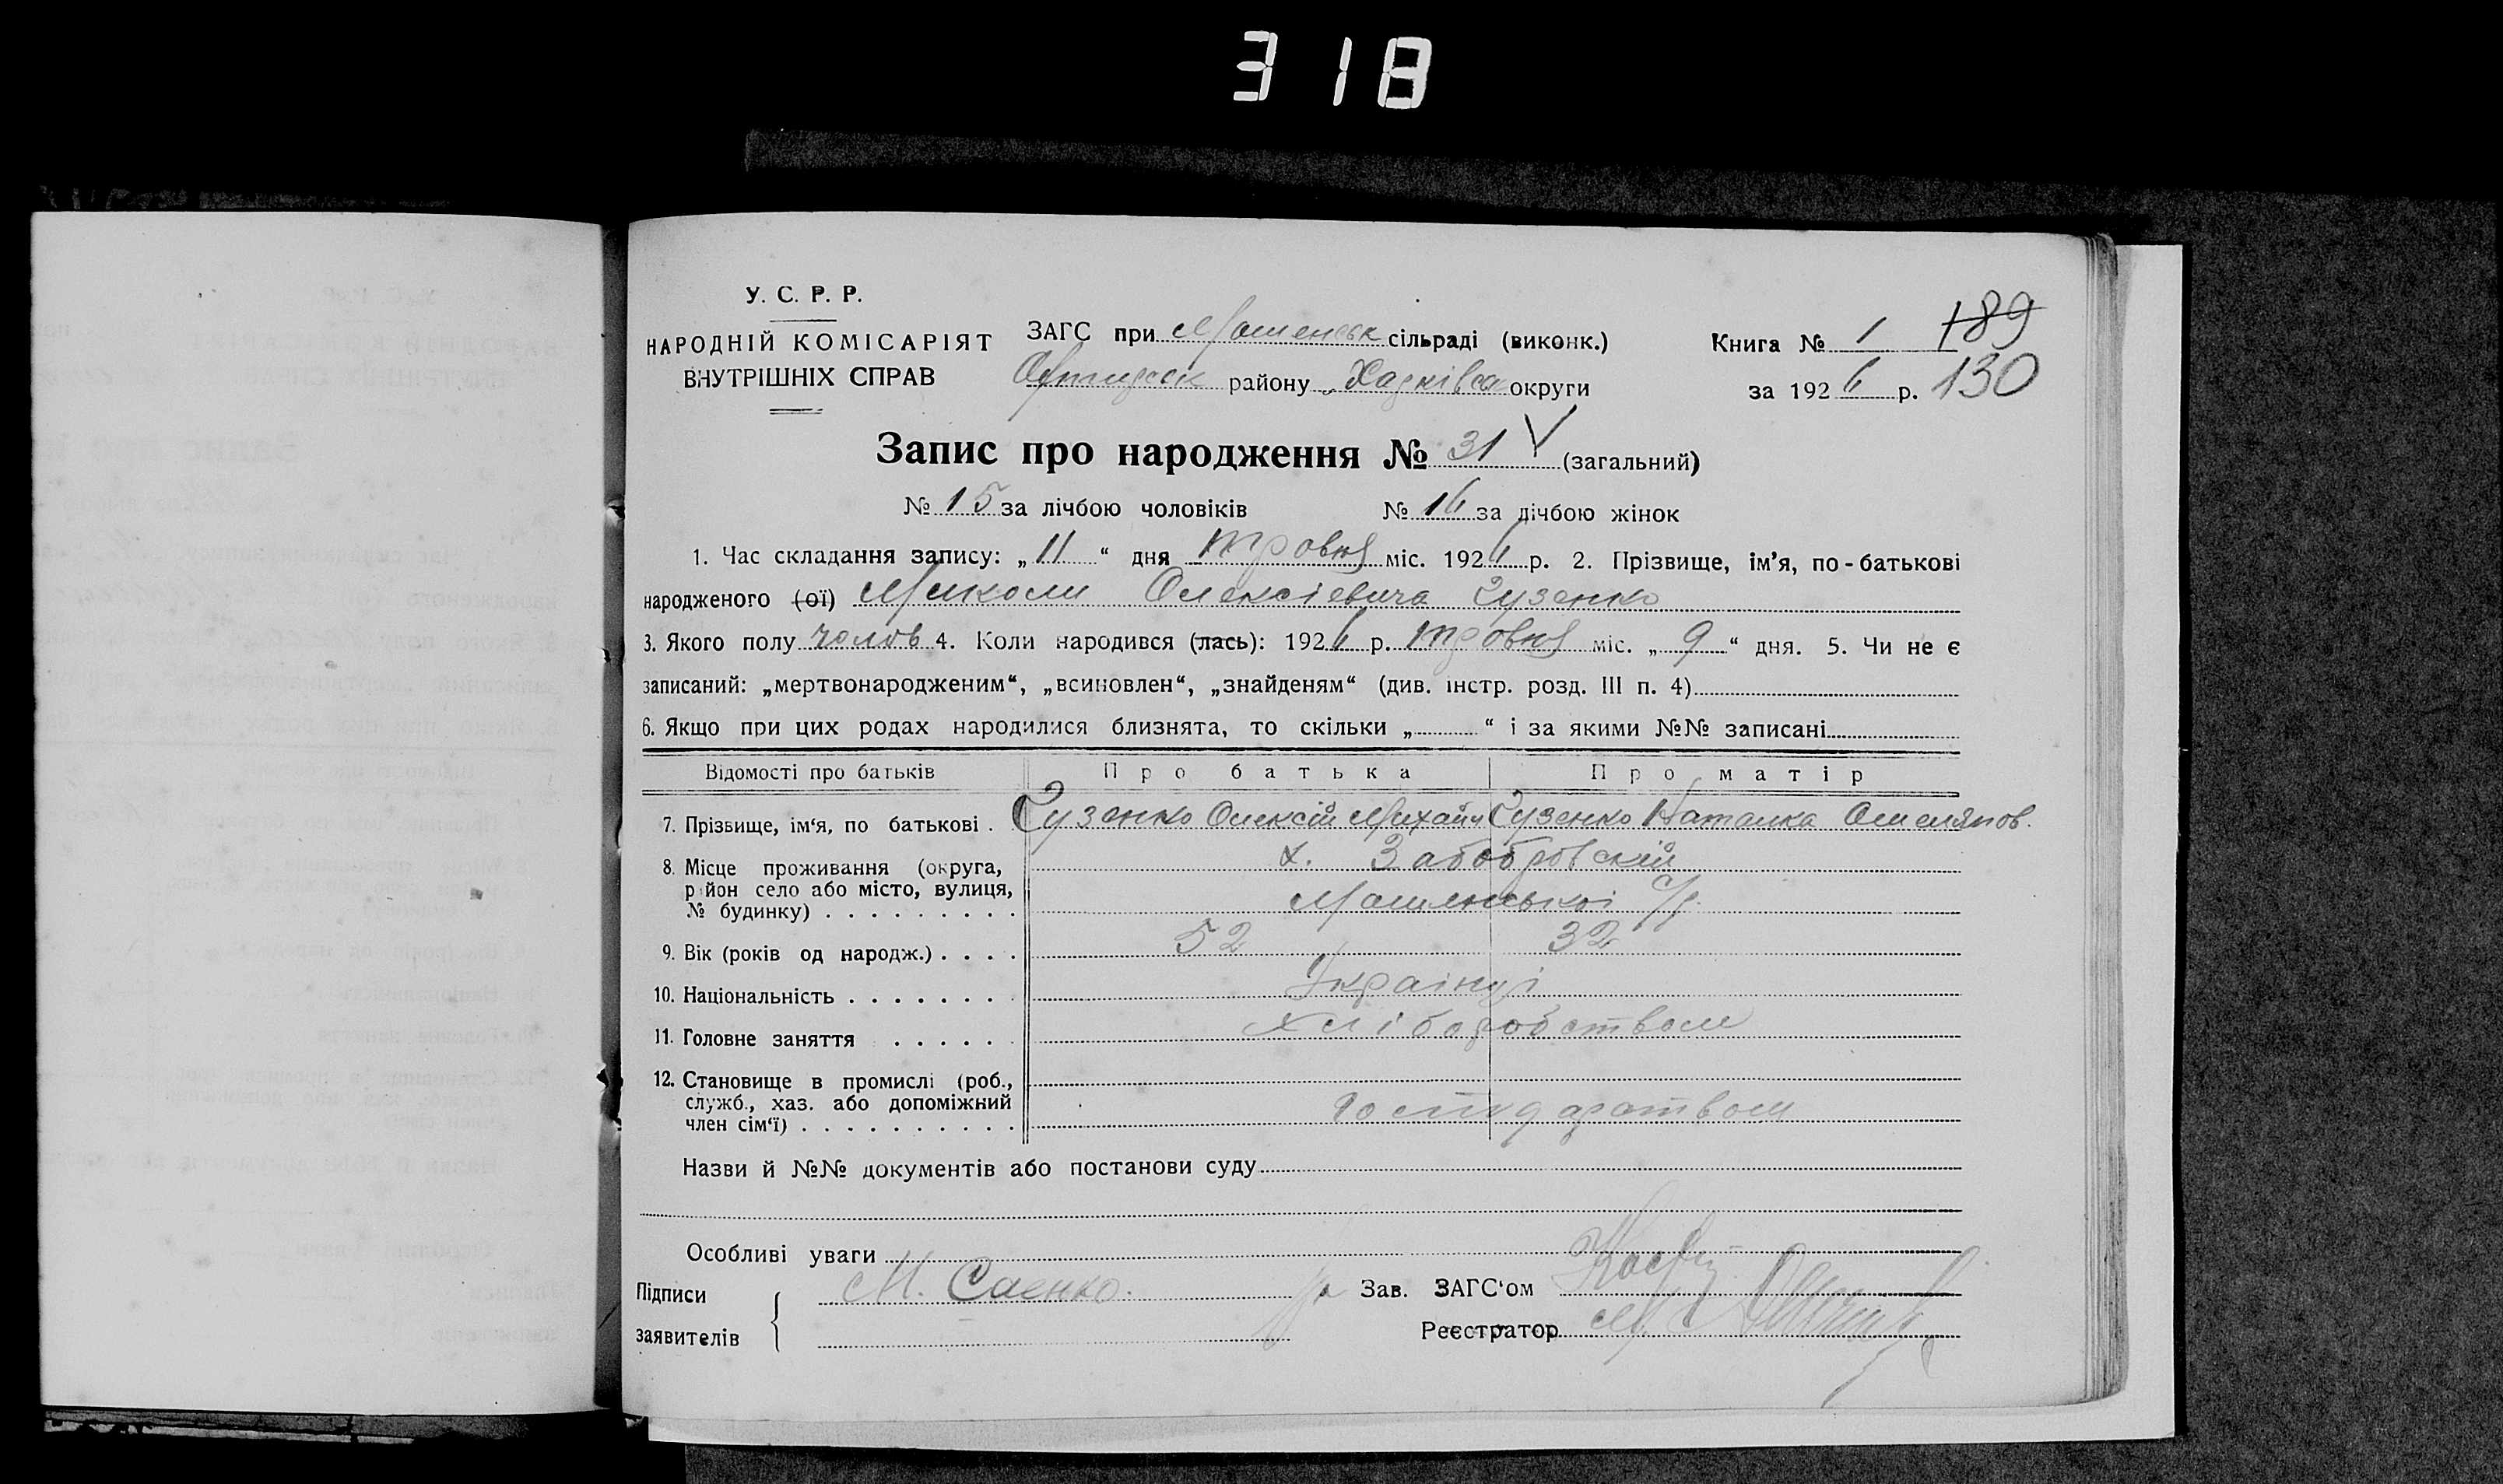 318
У. С. Р. Р.
НАРОДНІЙ КОМІСАРІЯТ
ВНУТРІШНІХ СПРАВ
ЗАГС при Мошенськ сільраді (виконк.)
району Харківсо округи
Книга № 1 189
за 1926 р. 130
Запис про народження № 31 V (загальний)
№ 15 за лічбою чоловіків № 16 за лічбою жінок
1. Час складання запису: „11“ дня травня міс. 1926 р. 2. Прізвище, ім'я, по-батькові
народженого (ої) Миколи Олексієвича Гузенко
3. Якого полу чолов 4. Коли народився (лась): 1926 р. травня міс. „9“ дня. 5. Чи не є
записаний: „мертвонародженим“, „всиновлен“, „знайденям“ (див. інстр. розд. III п. 4)
6. Якщо при цих родах народилися близнята, то скільки „ “ і за якими №№ записані
Відомості про батьків Про батька Про матір
7. Прізвище, ім'я, по батькові . Гузенко Олексій Михайл Гузенко Наталка Омелянов.
8. Місце проживання (округа, х. Забобровскій
район село або місто, вулиця,
№ будинку) . . . . . . . . . Мошенської с/р.
9. Вік (років од народж.) . . . . 52 32
10. Національність . . . . . . . . Українці
11. Головне заняття . . . . . . хліборобством
12. Становище в промислі (роб.,
служб., хаз. або допоміжний господарством
член сім'ї) . . . . . . . . . .
Назви й №№ документів або постанови суду
Особливі уваги
Підписи М. Саенко. Зав. ЗАГС'ом
заявителів Реєстратор